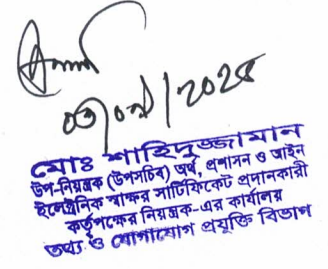 ০৩/০৯/২০২৫
মোঃ শাহিদুজ্জামান
উপ-নিয়ন্ত্রক (উপসচিব) অর্থ, প্রশাসন ও আইন
ইলেক্ট্রনিক স্বাক্ষর সার্টিফিকেট প্রদানকারী
কর্তৃপক্ষের নিয়ন্ত্রক-এর কার্যালয়
তথ্য ও যোগাযোগ প্রযুক্তি বিভাগ